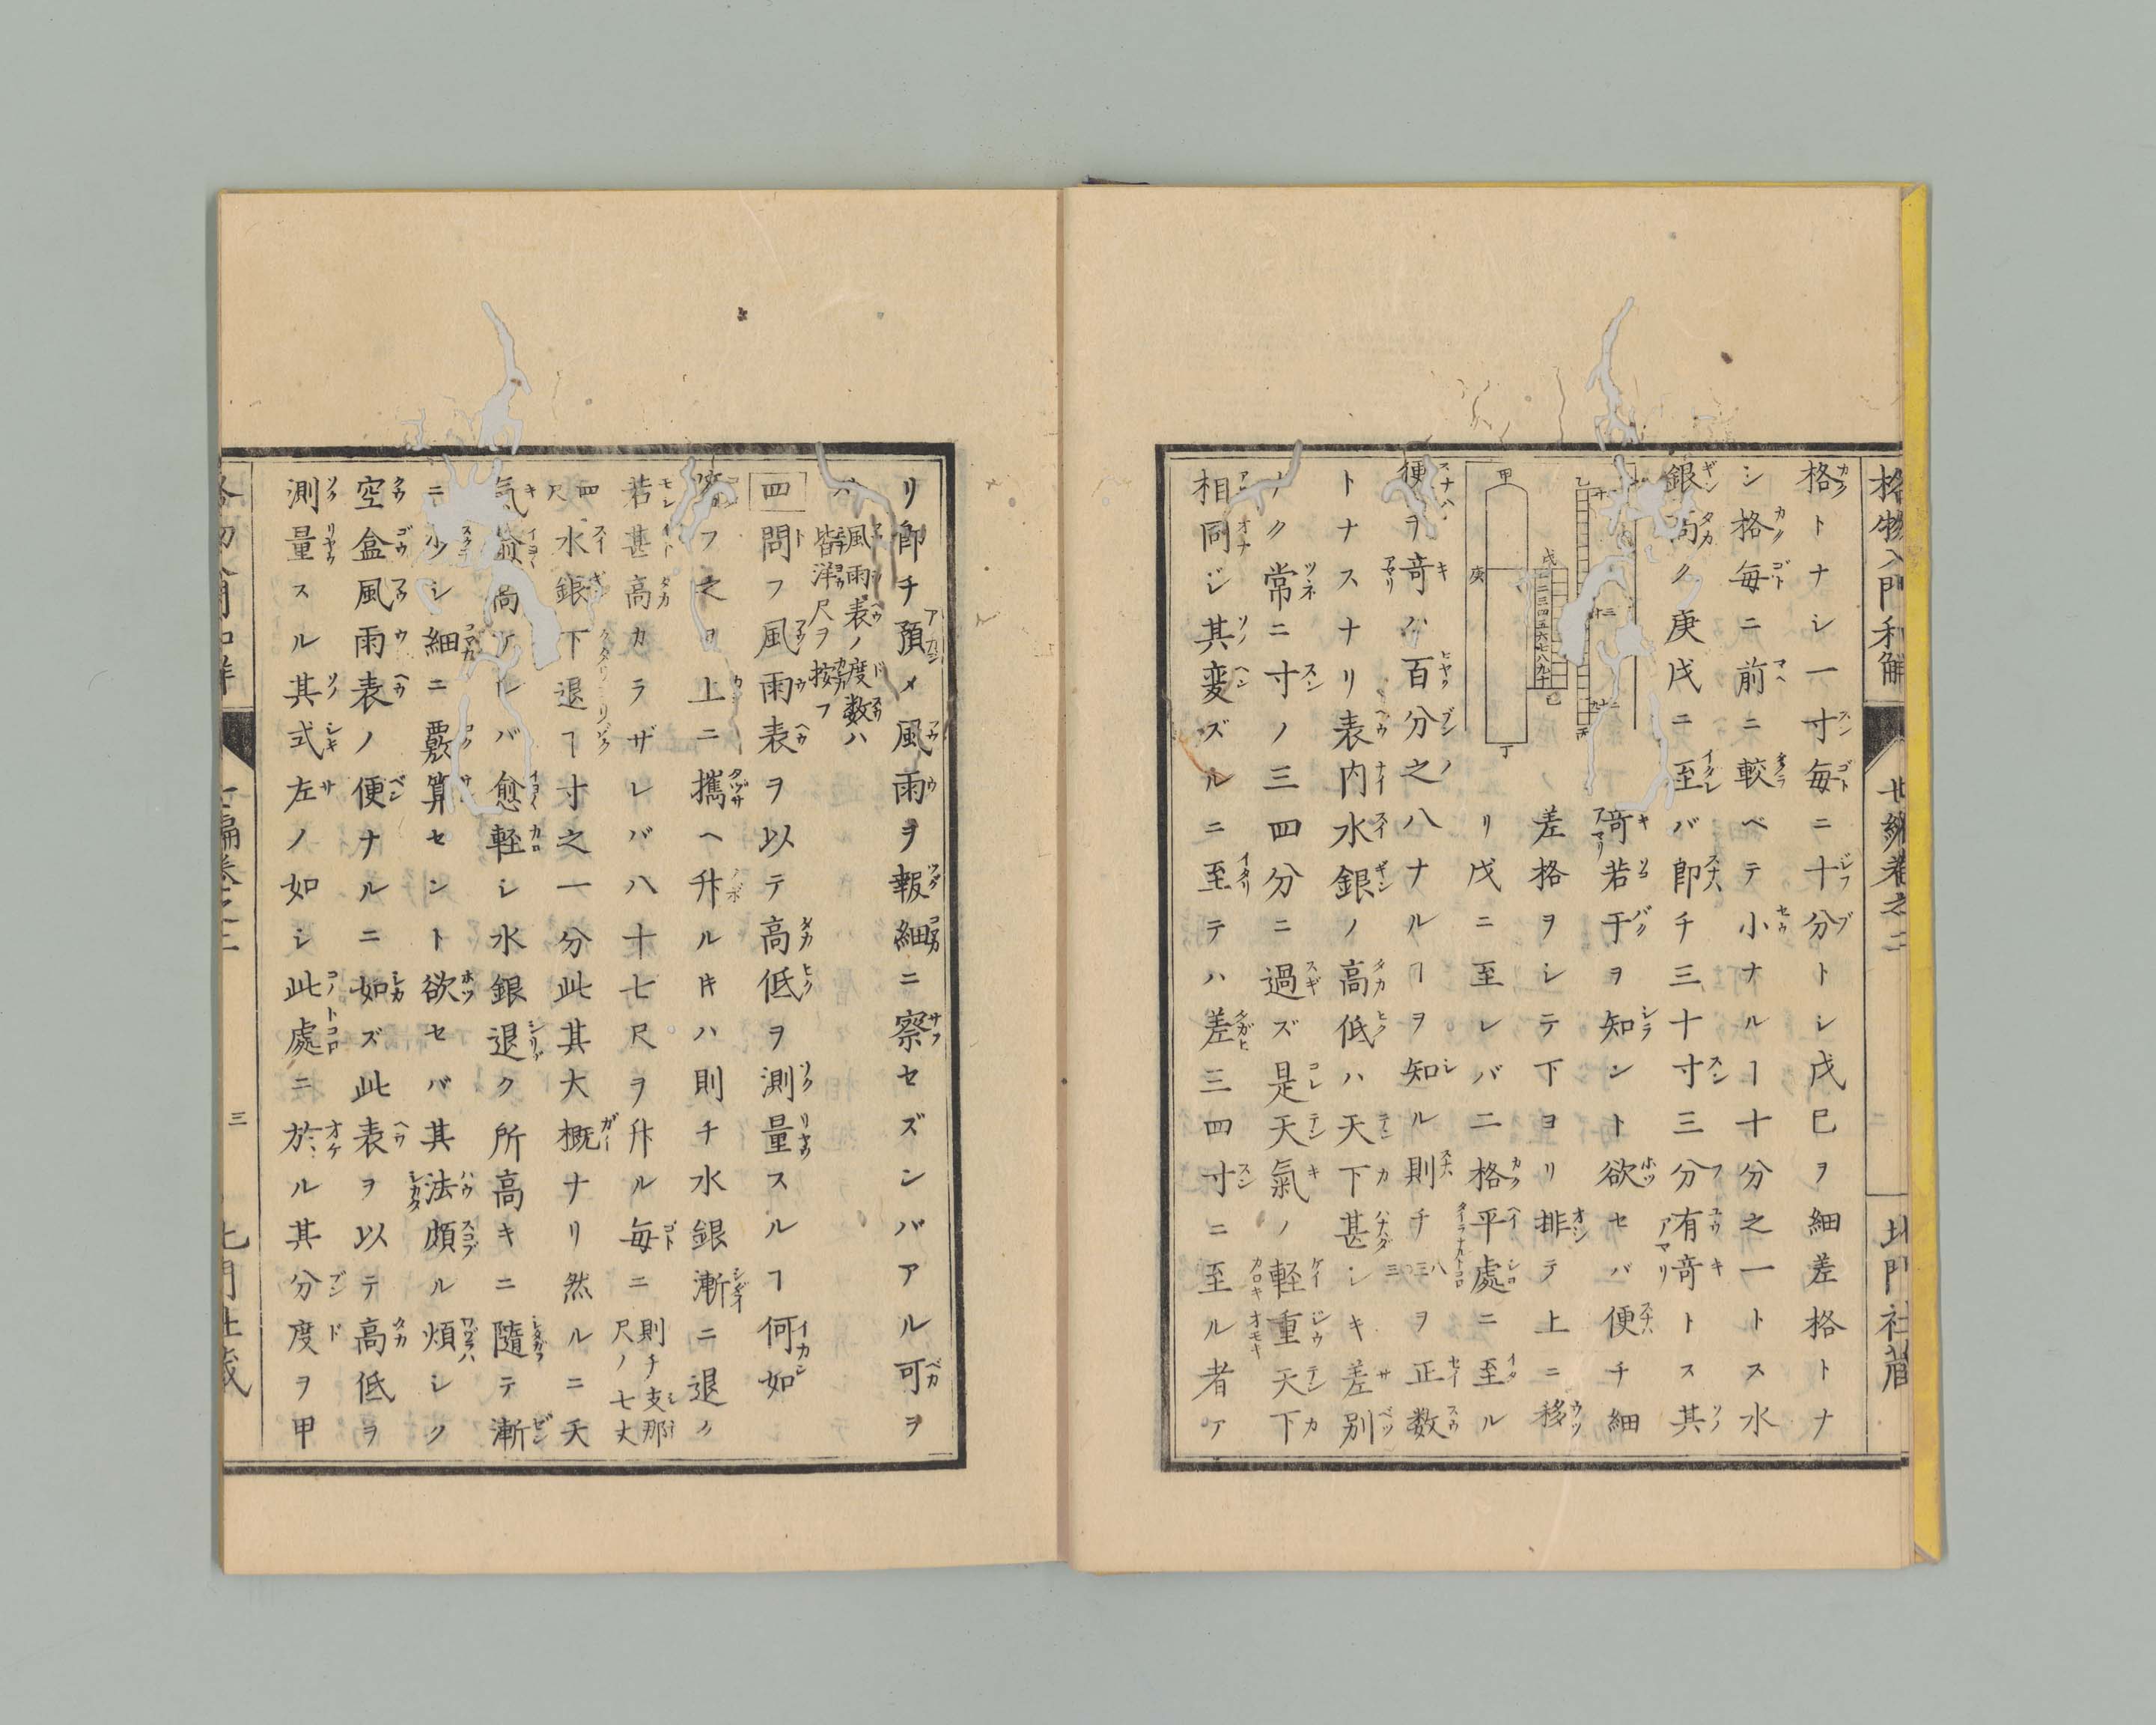 格物入門和解 卄編卷之二 北門社藏
格トナシ一寸毎ニ十分トシ戊巳ヲ細差格トナ
シ格毎ニ前ニ較ベテ小ナルヿ十分之一トス水
銀高ク庚戊ニ至バ即チ三十寸三分有竒トス其
竒若干ヲ知ント欲セバ便チ細
差格ヲシテ下ヨリ排テ上ニ移
リ戊ニ至レバ二格平處ニ至ル
甲 乙 丙 丁 戊 己 庚
一二三四五六七八九十
便 ヲ竒ハ百分之八ナルヿヲ知ル則チ三〇三八ヲ正数
トナスナリ表内水銀ノ高低ハ天下甚シキ差別
ク常ニ寸ノ三四分ニ過ズ是天氣ノ軽重天下
相同ジ其変ズルニ至テハ差三四寸ニ至ル者ア
リ即チ預メ風雨ヲ報細ニ察セズンバアル可ヲ
風雨表ノ度数ハ
皆洋尺ヲ按フ
四 問フ風雨表ヲ以テ高低ヲ測量スルヿ何如
フ之ヲ上ニ攜ヘ升ル時ハ則チ水銀漸ニ退ク
若甚高カラザレバ八十七尺ヲ升ル毎ニ則チ支那尺ノ七丈
四尺水銀下退ヿ寸之一分此其大概ナリ然ルニ天
氣愈高ケレバ愈軽シ水銀退ク所高キニ隨テ漸
ニ少シ細ニ覈算セント欲セバ其法頗ル煩シク
空盒風雨表ノ便ナルニ如ズ此表ヲ以テ高低ヲ
測量スル其式左ノ如シ此處ニ於ル其分度ヲ甲
三